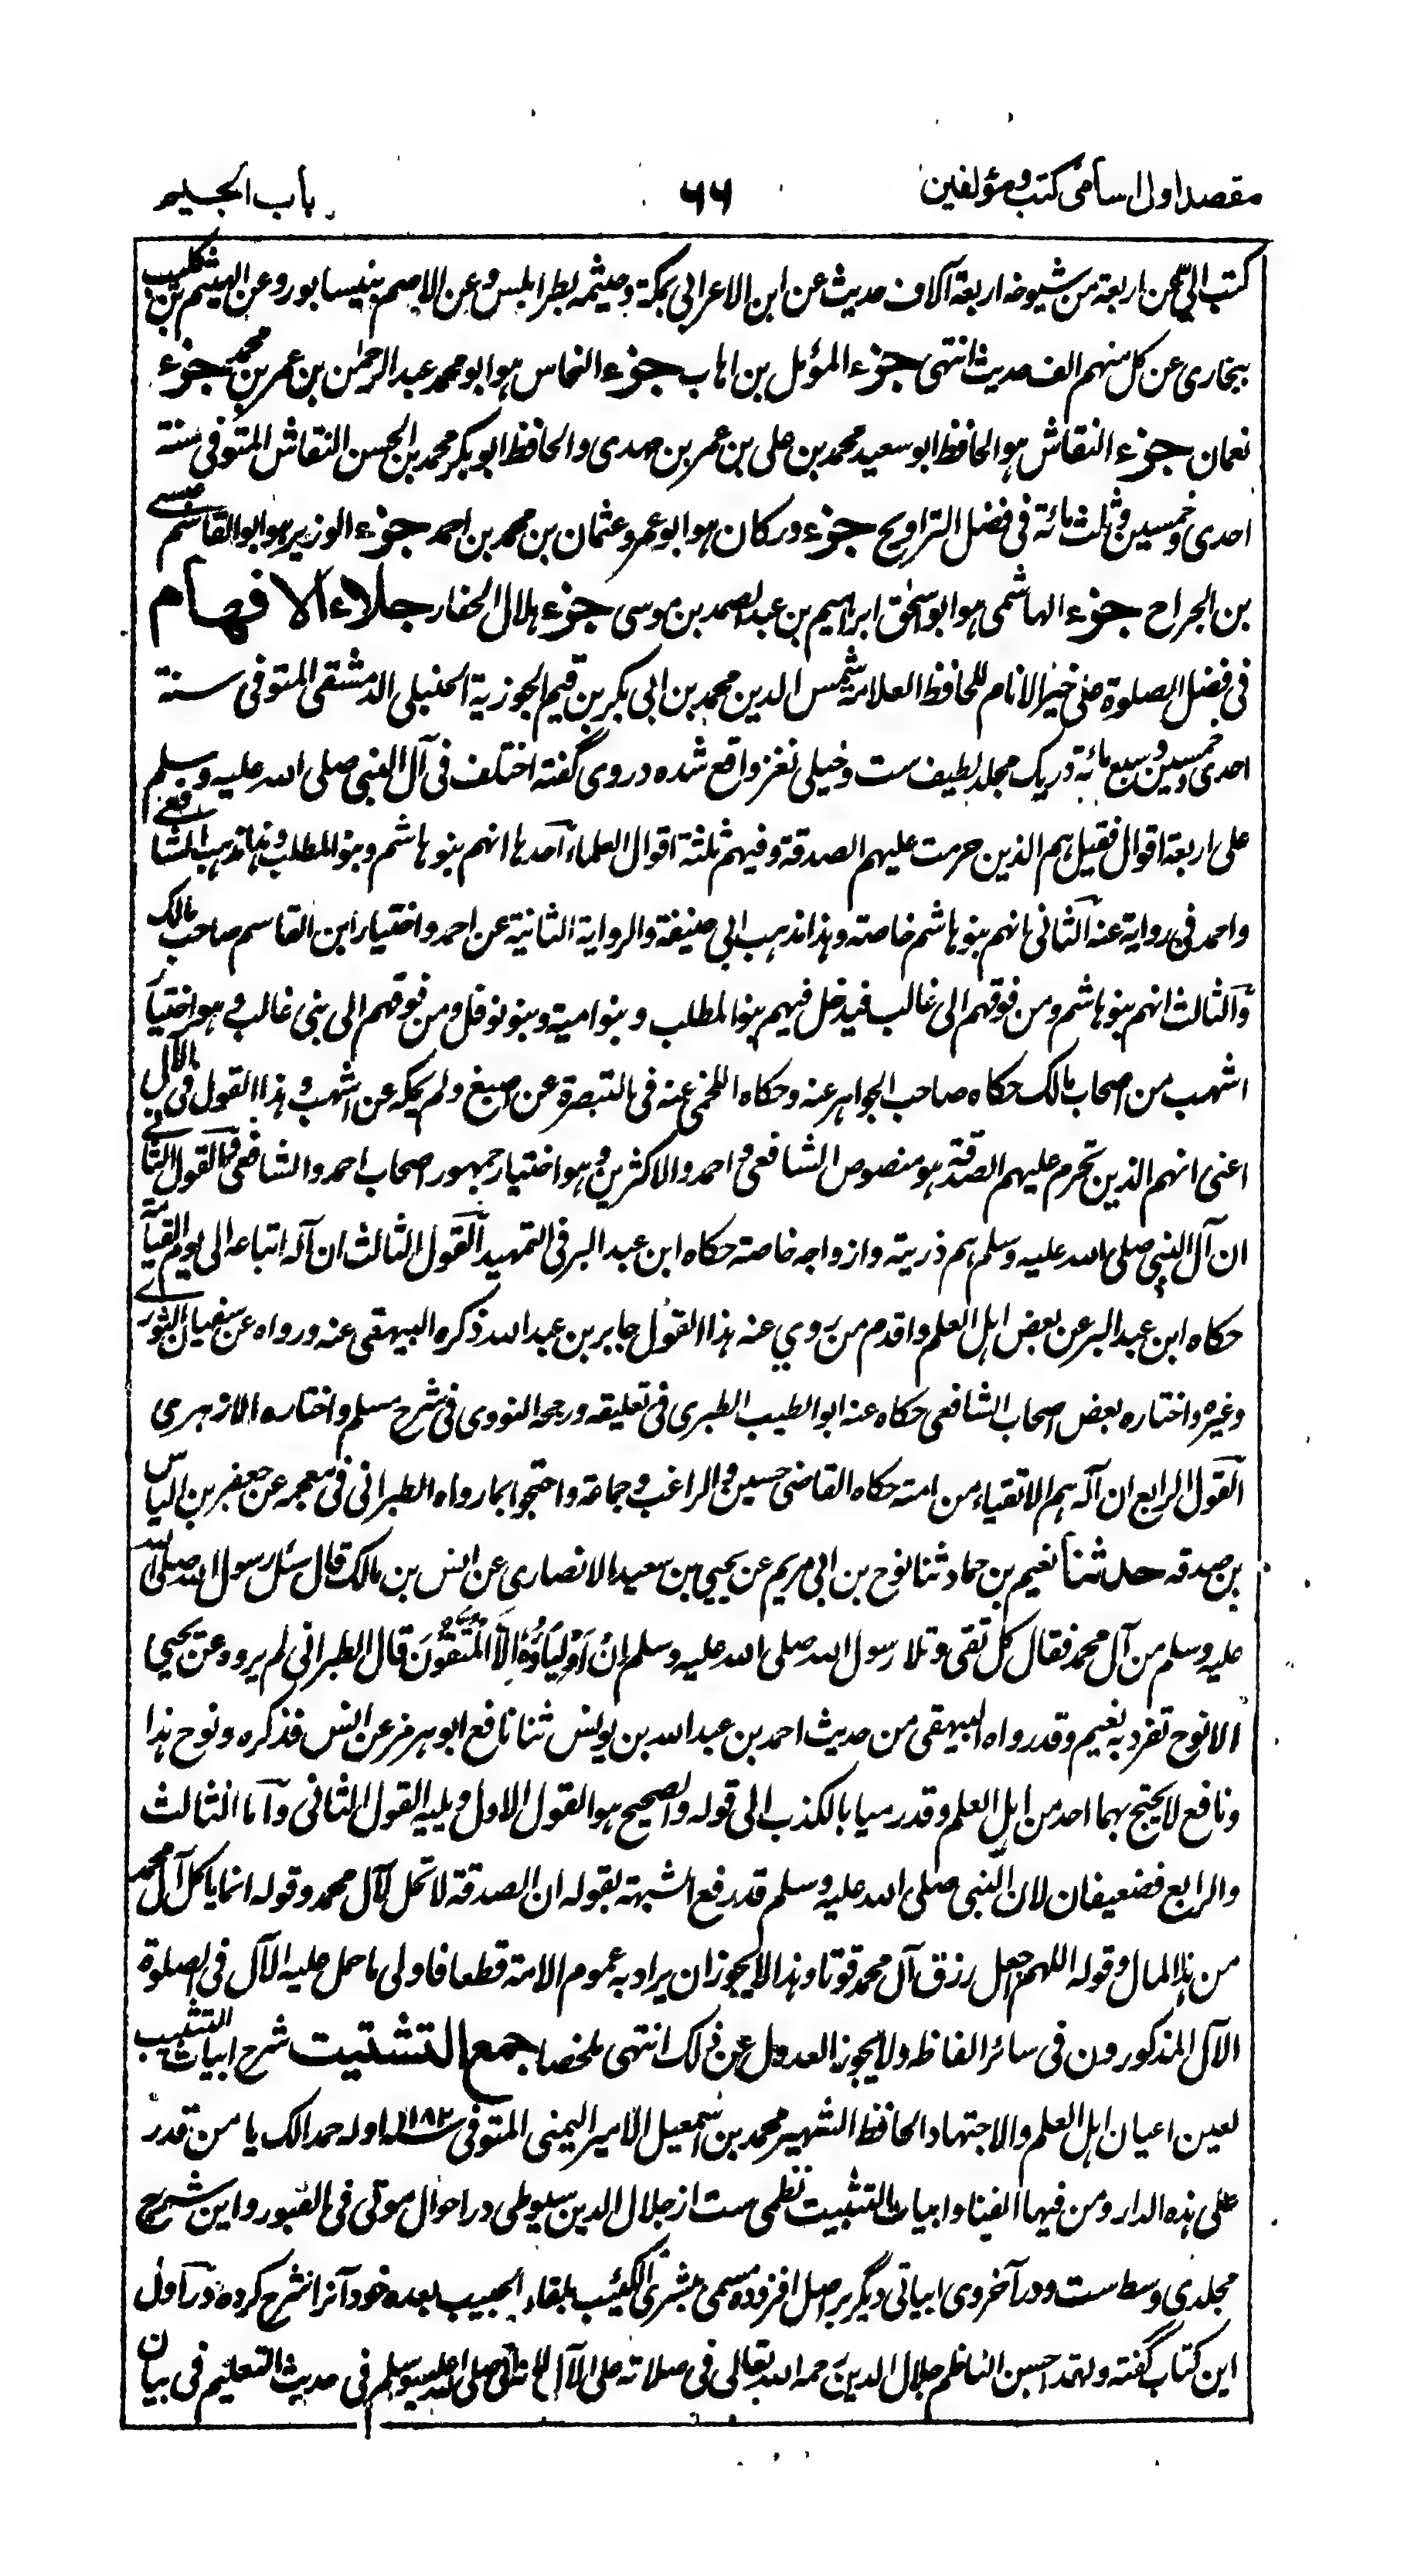 مقصد اول اسامی کتب و مؤلفین
۶۶
باب الجیم
کتب الیّ عن اربعة من شیوخه اربعة آلاف حدیث عن ابن الاعرابی بمکة وخیثمه بطرابلس وعن الاصم بنیسابور وعن الهیثم بن کلیب
ببخاری عن کل منهم الف حدیث انتهی جزء المؤمل بن اهاب جزء النحاس هو ابو محمد عبد الرحمٰن بن عمر بن محمد جزء
نعمان جزء النقاش هو الحافظ ابو سعید محمد بن علی بن عمر بن مهدی والحافظ ابو بکر محمد بن الحسن النقاش المتوفی سنة
احدی وخمسین وثلث مائة فی فضل التراویح جزء ورکان هو ابو عمرو عثمان بن محمد بن احمد جزء الوزیر هو ابو القاسم عیسی
بن الجراح جزء الهاشمی هو ابو اسحٰق ابراهیم بن عبد الصمد بن موسی جزء هلال الحفار جلاء الافهام
فی فضل الصلوة علی خیر الانام للحافظ العلامة شمس الدین محمد بن ابی بکر بن قیم الجوزیة الحنبلی الدمشقی المتوفی سنة
احدی وخمسین وسبع مائة در یک مجلد لطیف ست وخیلی نغز واقع شده در وی گفته اختلف فی آل النبی صلی الله علیه وسلم
علی اربعة اقوال فقیل هم الذین حرمت علیهم الصدقة وفیهم ثلثة اقوال العلماء احدها انهم بنو هاشم وبنو المطلب وهذا مذهب الشافعی
واحمد فی روایة عنه الثانی انهم بنو هاشم خاصة وهذا مذهب ابی حنیفة والروایة الثانیة عن احمد واختیار ابن القاسم صاحب مالک
والثالث انهم بنو هاشم ومن فوقهم الی غالب فیدخل فیهم بنو المطلب وبنو امیة وبنو نوفل ومن فوقهم الی بنی غالب وهو اختیار
اشهب من اصحاب مالک حکاه صاحب الجواهر عنه وحکاه اللخمی عنه فی التبصرة عن اصبغ ولم یحکه عن اشهب وهذا القول فی الآل
اعنی انهم الذین تحرم علیهم الصدقة هو منصوص الشافعی واحمد والاکثرین وهو اختیار جمهور اصحاب احمد والشافعی والقول الثانی
ان آل النبی صلی الله علیه وسلم هم ذریته وازواجه خاصة حکاه ابن عبد البر فی التمهید القول الثالث ان آله اتباعه الی یوم القیامة
حکاه ابن عبد البر عن بعض اهل العلم واقدم من روي عنه هذا القول جابر بن عبد الله ذکره البیهقی عنه ورواه عن سفیان الثوری
وغیره واختاره بعض اصحاب الشافعی حکاه عنه ابو الطیب الطبری فی تعلیقه ورجحه النووی فی شرح مسلم واختاره الازهری
القول الرابع ان آله هم الاتقیاء من امته حکاه القاضی حسین والراغب وجماعة واحتجوا بما رواه الطبرانی فی معجمه عن جعفر بن الیاس
بن صدقه حدثنا نعیم بن حماد ثنا نوح بن ابی مریم عن یحیی بن سعید الانصاری عن انس بن مالک قال سئل رسول الله صلی الله
علیه وسلم من آل محمد فقال کل تقی وتلا رسول الله صلی الله علیه وسلم اِنْ اَوْلِیَاؤُهٗ اِلَّا الْمُتَّقُوْنَ قال الطبرانی لم یروه عن یحیی
الا نوح تفرد به نعیم وقد رواه البیهقی من حدیث احمد بن عبد الله بن یونس ثنا نافع ابو هرمز عن انس فذکره ونوح هذا
ونافع لا یحتج بهما احد من اهل العلم وقد رمیا بالکذب الی قوله والصحیح هو القول الاول ویلیه القول الثانی واما الثالث
والرابع فضعیفان لان النبی صلی الله علیه وسلم قد رفع الشبهة بقوله ان الصدقة لا تحل لآل محمد وقوله انما یاکل آل محمد
من هذا المال وقوله اللهم اجعل رزق آل محمد قوتا وهذا لا یجوز ان یراد به عموم الامة قطعا فاولی ما حمل علیه الآل فی الصلوة
الآل المذکورون فی سائر الفاظه ولا یجوز العدول عن ذلک انتهی ملخصا جمع التشتیت شرح ابیات التثبیت
لعین اعیان اهل العلم والاجتهاد الحافظ الشهیر محمد بن اسمعیل الامیر الیمنی المتوفی سنه ۱۱۸۲ اوله حمدا لک یا من قدر
علی هذه الدار ومن فیها الفنا وابیات التثبیت نظمی ست از جلال الدین سیوطی در احوال موتی فی القبور واین شرح
مجلدی وسط ست ودر آخر وی ابیاتی دیگر بر اصل افزوده مسمی بشری الکئیب بلقاء الحبیب بعده خود آنرا شرح کرده در اول
این کتاب گفته ولقد احسن الناظم جلال الدین رحمه الله تعالی فی صلاته علی الآل صلی الله علیه وسلم فی حدیث التعلیم فی بیان